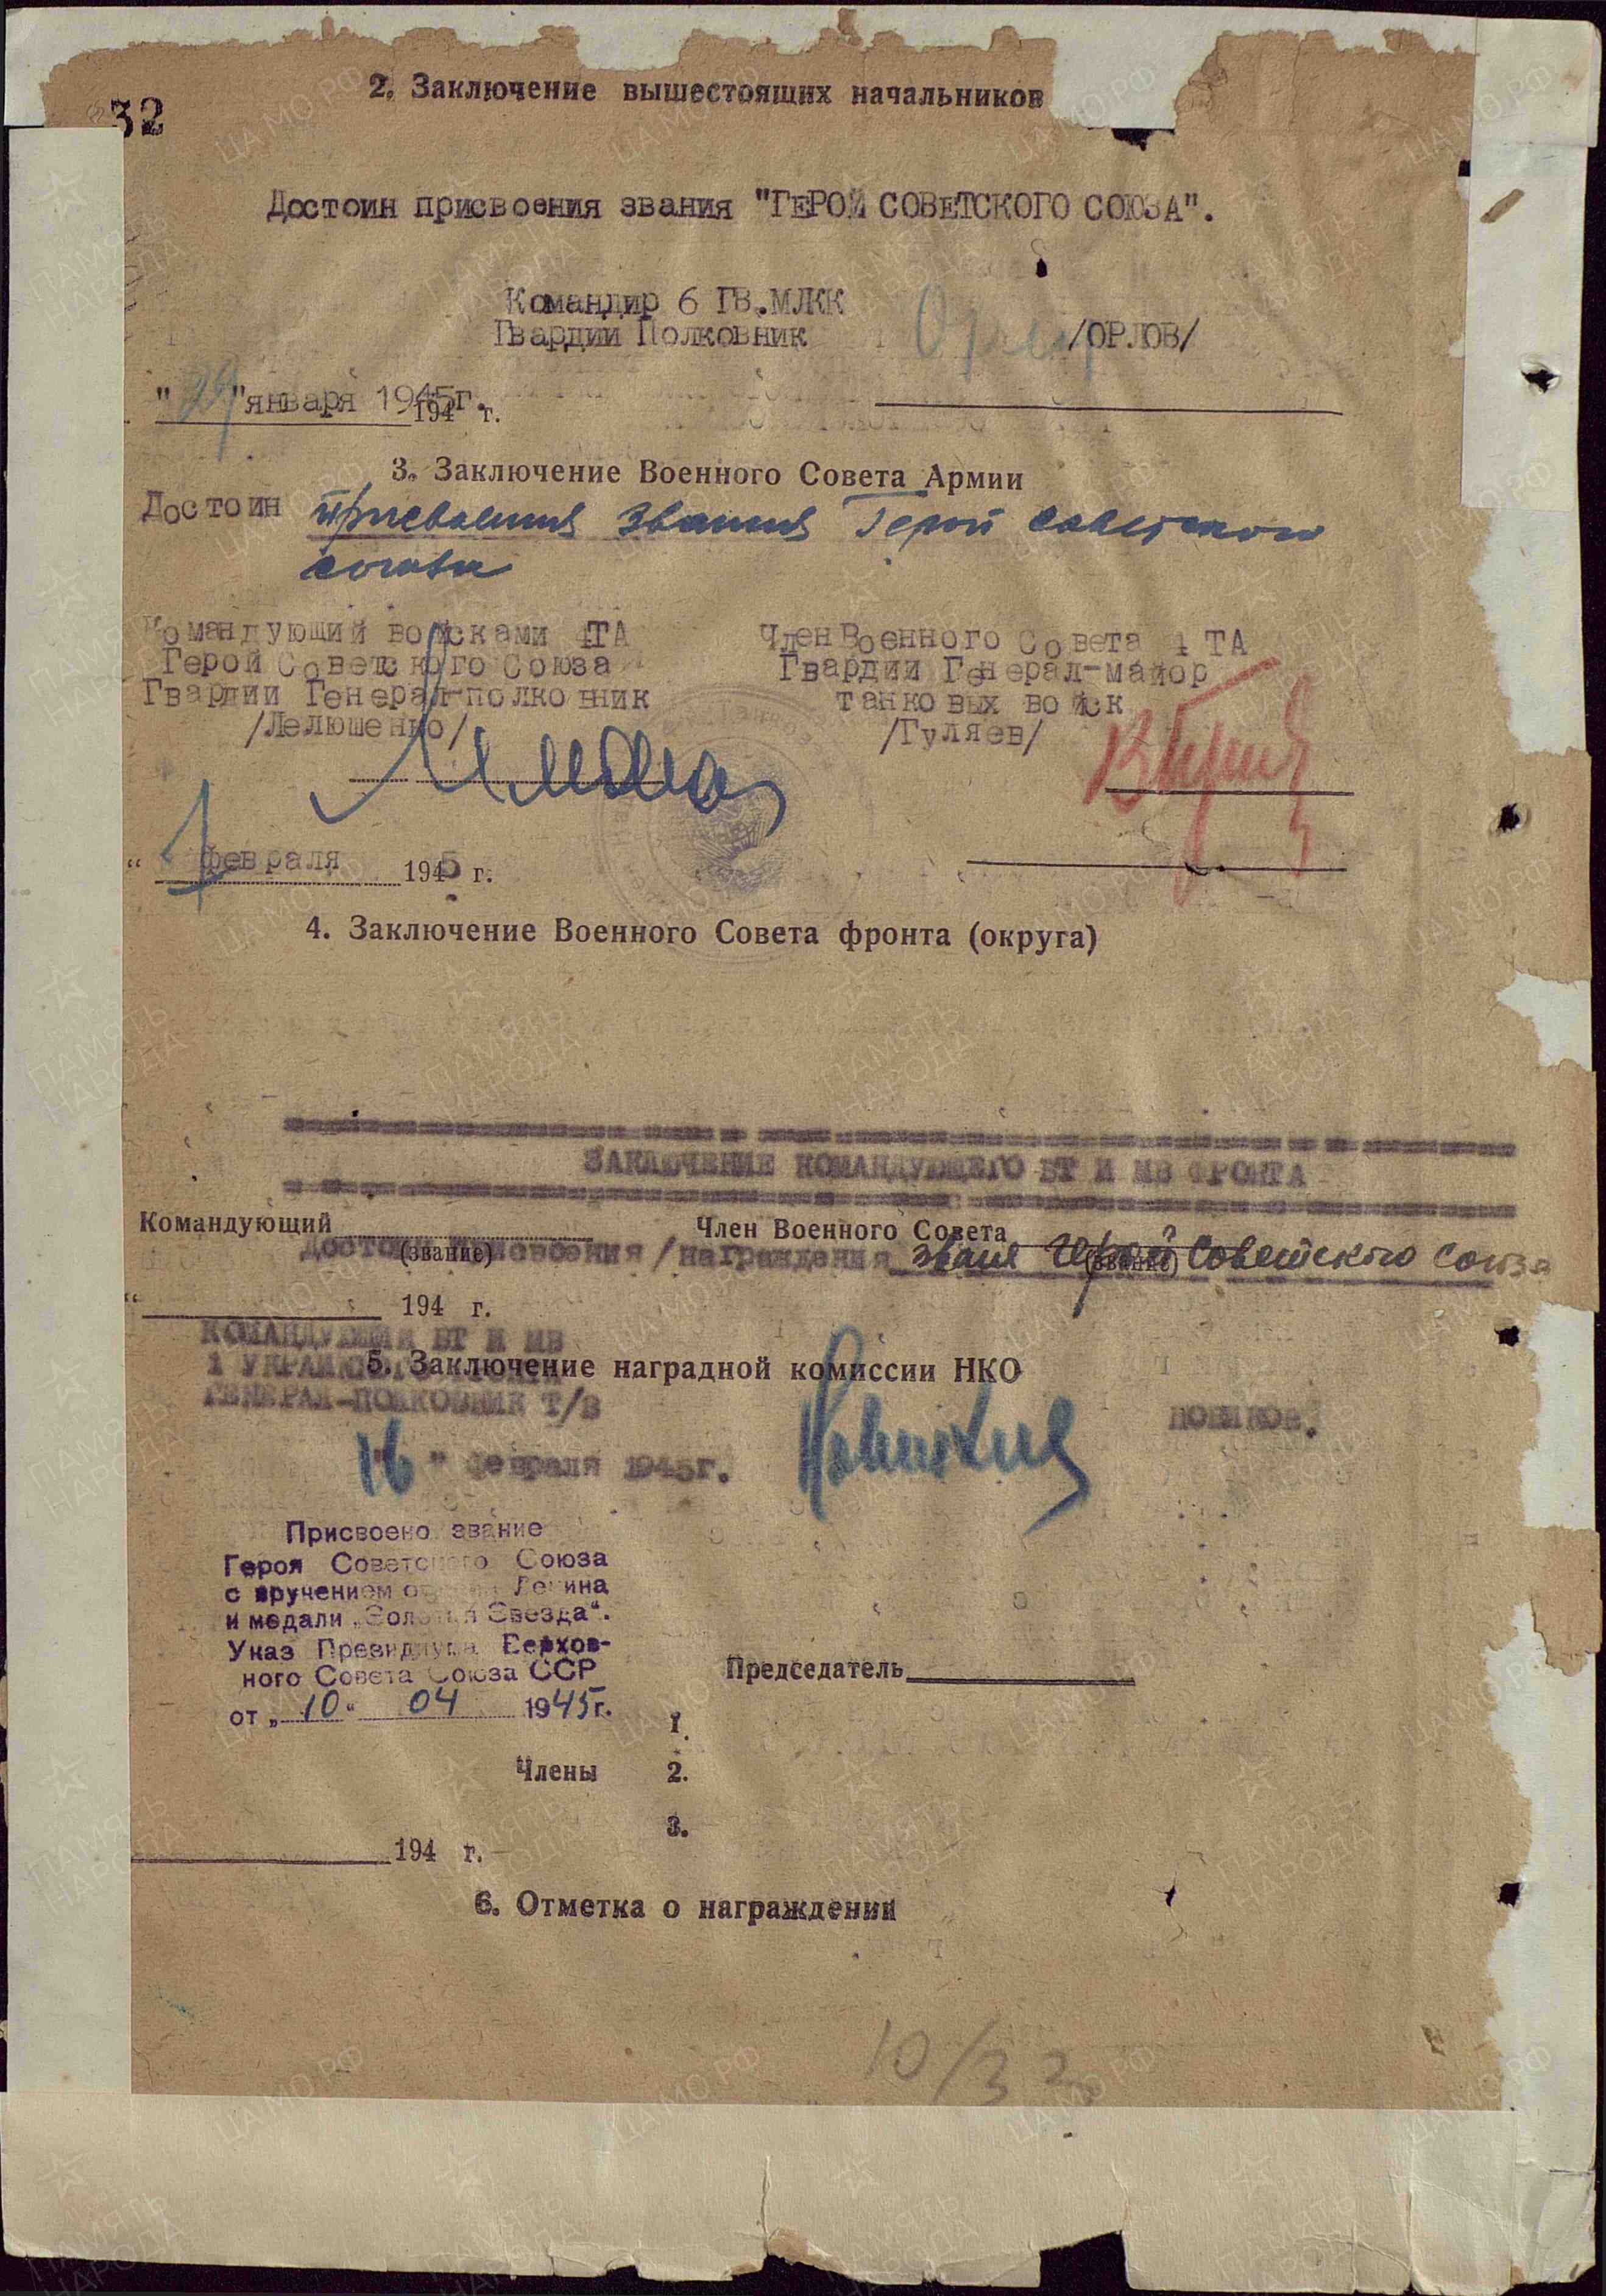 32
2. Заключение вышестоящих начальников
Достоин присвоения звания "ГЕРОЙ СОВЕТСКОГО СОЮЗА".
Командир 6 ГВ.МЛКК
Гвардии Полковник /ОРЛОВ/
"29"января 1945г.
194 г.
3. Заключение Военного Совета Армии
Достоин присвоения звания Герой Советского
Союза
Командующий войсками 4ТА
Герой Советского Союза
Гвардии Генерал-полковник
/Лелюшенко/
Член Военного Совета 4 ТА
Гвардии Генерал-майор
танковых войск
/Гуляев/
"1 февраля 1945 г.
4. Заключение Военного Совета фронта (округа)
ЗАКЛЮЧЕНИЕ КОМАНДУЮЩЕГО БТ И МВ ФРОНТА
Командующий Член Военного Совета
(звание) (звание)
Достоин присвоения/награждения звания Герой Советского Союза
" 194 г.
КОМАНДУЮЩИЙ БТ И МВ
1 УКРАИНСКОГО
5. Заключение наградной комиссии НКО
ГЕНЕРАЛ-ПОЛКОВНИК Т/В НОВИКОВ.
"16" февраля 1945г.
Присвоено звание
Героя Советского Союза
с вручением ордена Ленина
и медали „Золотая Звезда“.
Указ Президиума Верхов-
ного Совета Союза ССР
от „10“ 04 1945г.
Председатель
1.
Члены 2.
3.
194 г.
6. Отметка о награждении
10/32
ПАМЯТЬ НАРОДА
ЦАМО РФ